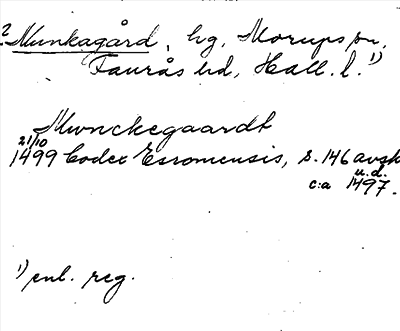 ? Munkagård, hg, Morups sn,
Faurås hd, Hall. l. 1)
Mwnckegaardt
21/10
1499 Codex Esromensis, s. 146 avskr
u.d.
c:a 1497.
1) enl. reg.